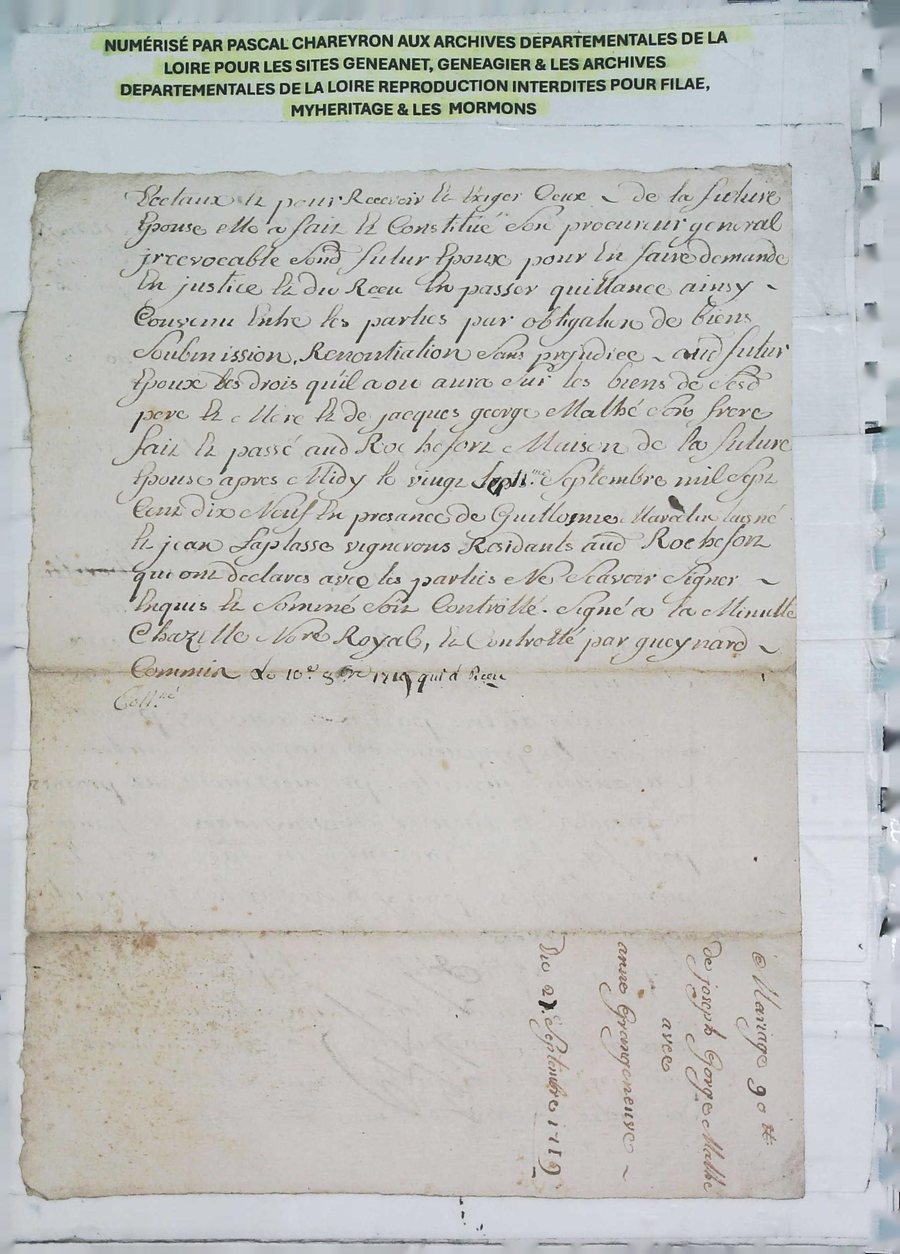 NUMÉRISÉ PAR PASCAL CHAREYRON AUX ARCHIVES DEPARTEMENTALES DE LA
LOIRE POUR LES SITES GENEANET, GENEAGIER & LES ARCHIVES
DEPARTEMENTALES DE LA LOIRE REPRODUCTION INTERDITES POUR FILAE,
MYHERITAGE & LES MORMONS
et pour Recevoir et Exiger Ceux ~ de la future
Epouse elle a fait et Constitué son procureur general
jrrevocable sond futur Epoux pour en faire demande
En justice et du Receu En passer quittance ainsy ~
Convenu Entre les parties par obligation de biens
Soubmission, Renontiation Sans prejudice ~ aud futur
Epoux des drois quil a ou aura sur les biens de Sesd
pere et Mere et de jacques george Mathé Son frere
fait et passé aud Rochefort Maison de la future
Epouse apres Midy le vingt sept.me Septembre mil Sept
Cent dix Neuf En presance de Guillosme laisné
Et jean Laplasse vignerons Residants aud Rochefort
qui ont declares avec les parties Ne Scavoir Signer ~
Enquis et Sommé Soit Controllé. Signé a la Minutte
Chazette Nore Royal, et Controllé par gueynard ~
Commis Le 10e 8bre 1719 qui d Receu
Coll.né
C Mariage 90 tt
de joseph Gorge Mathé
avec
anne Grangeneuve ~
Du 27 Septembre 1719